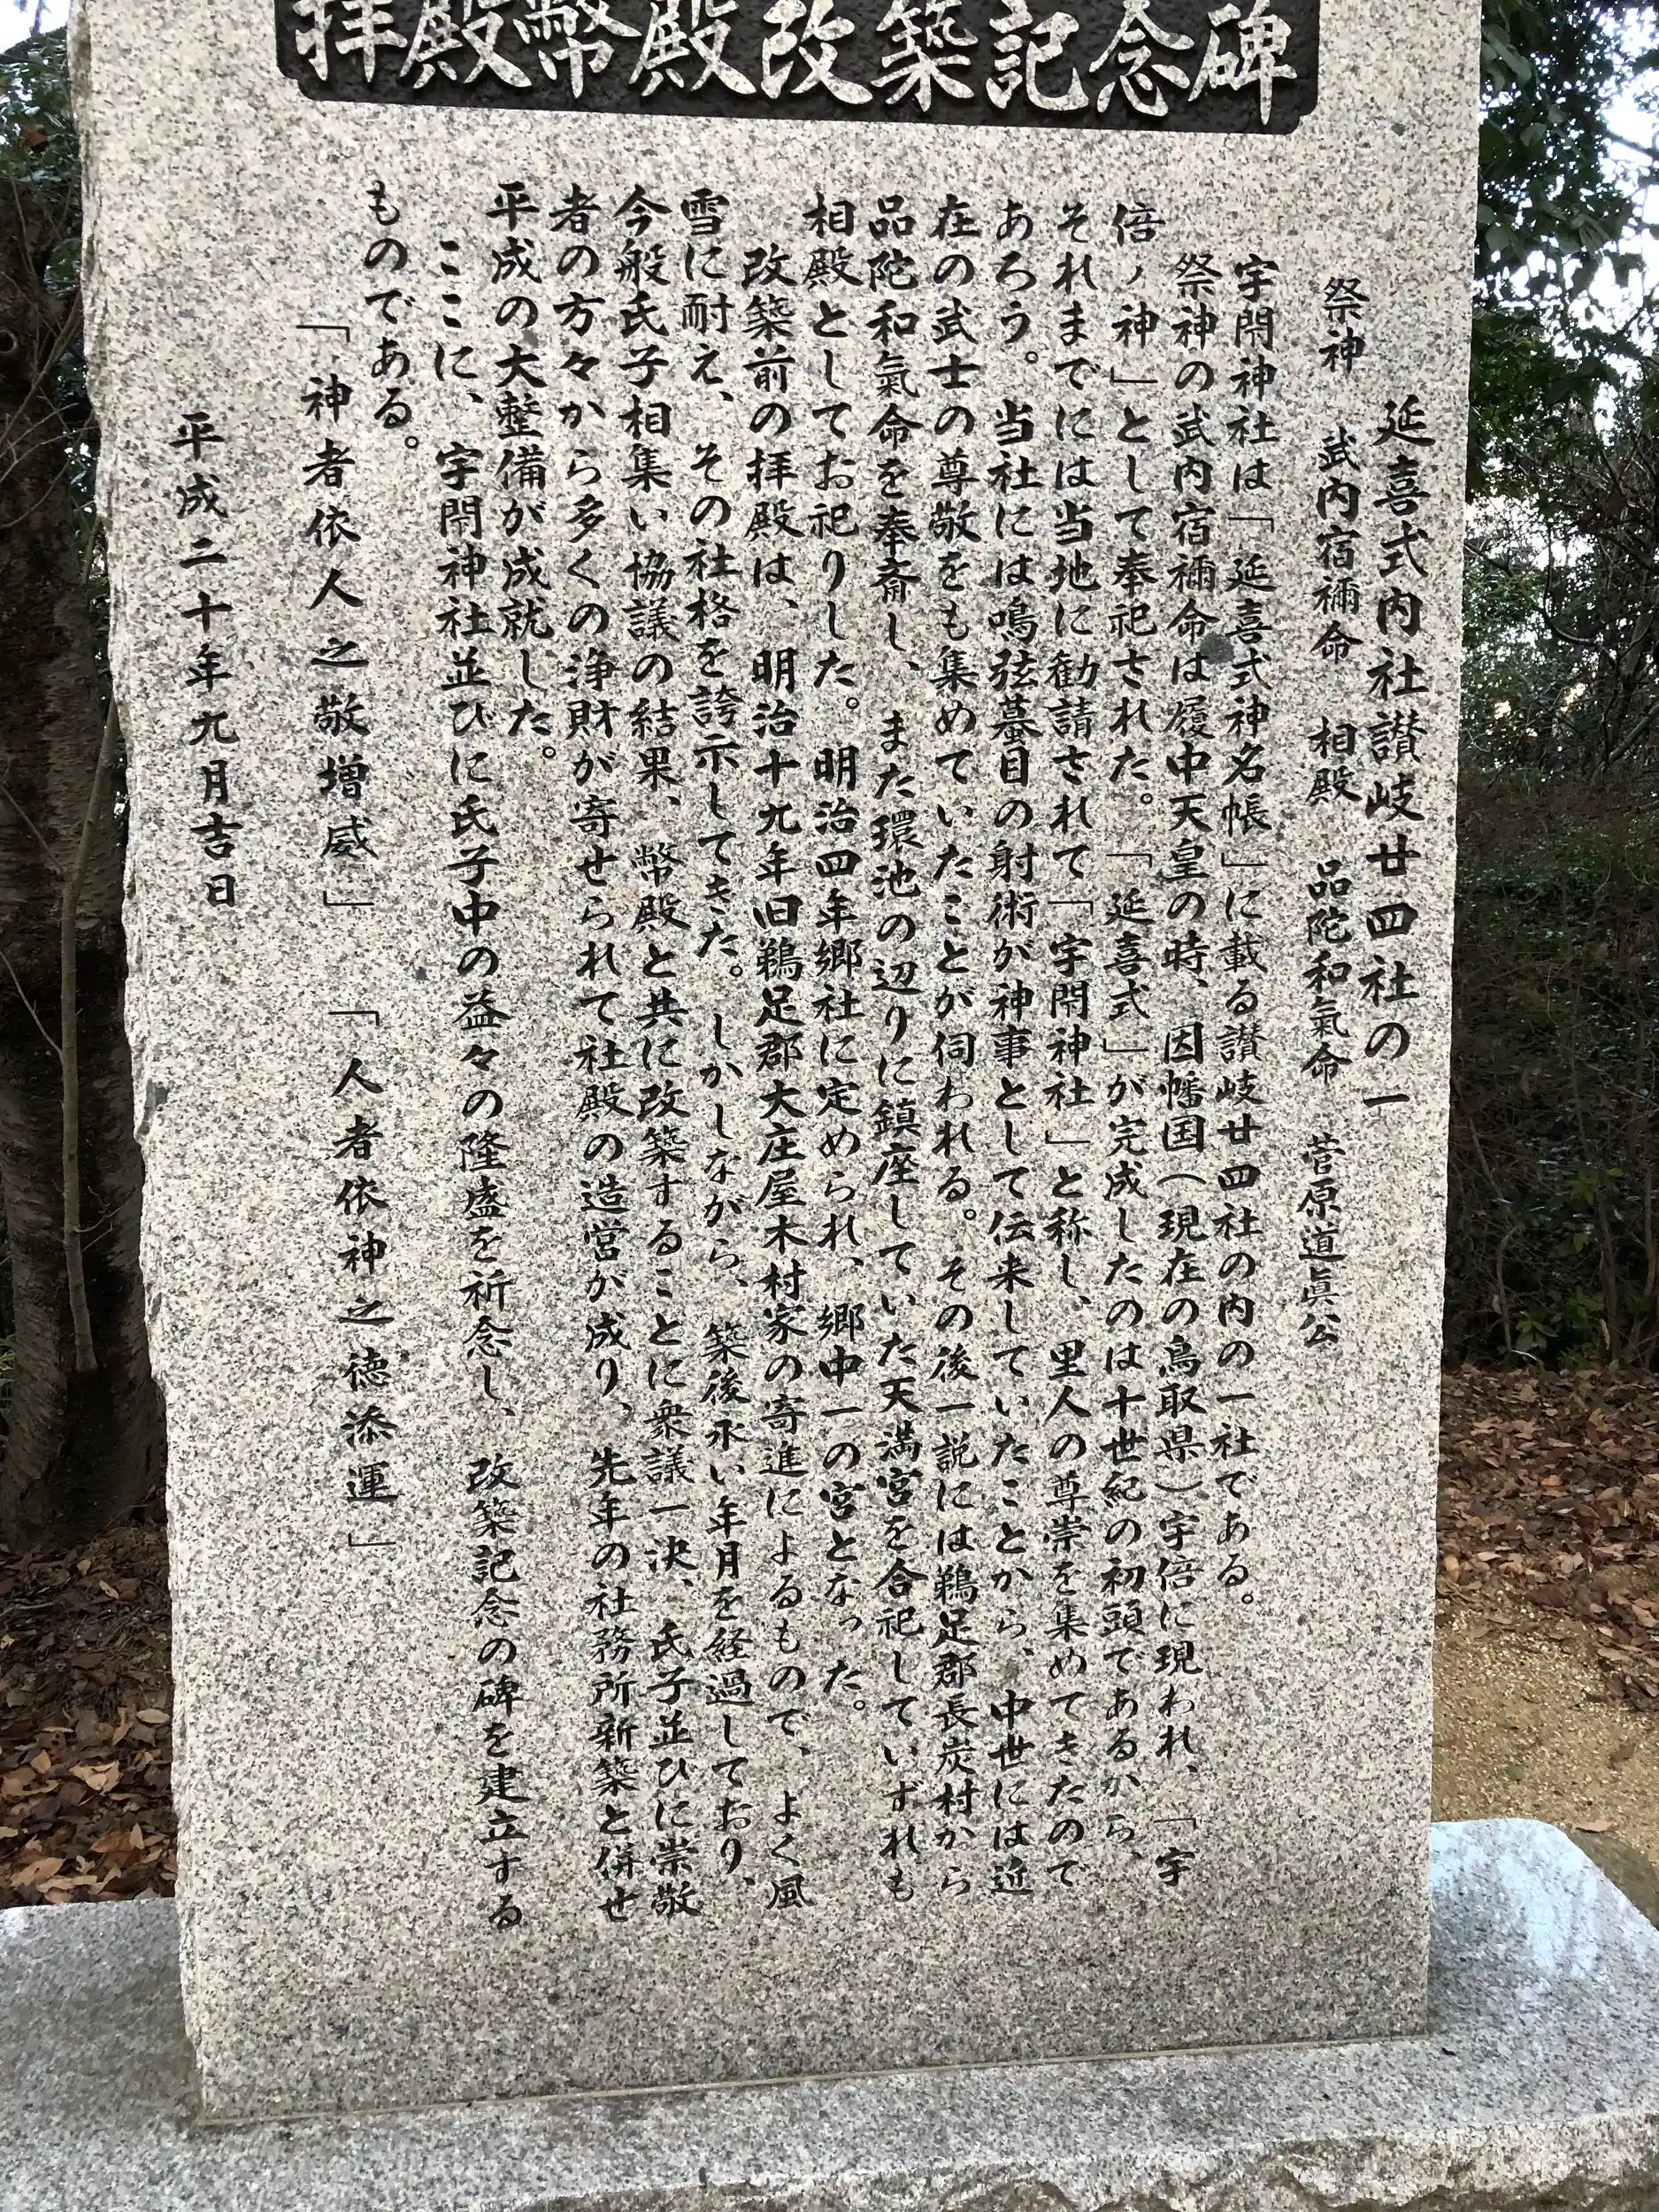 拝殿幣殿改築記念碑
延喜式内社讃岐廿四社の一
祭神　武内宿禰命　相殿　品陀和氣命　菅原道眞公
宇閇神社は「延喜式神名帳」に載る讃岐廿四社の内の一社である。
祭神の武内宿禰命は履中天皇の時、因幡国（現在の鳥取県）宇倍に現われ、「宇
倍ノ神」として奉祀された。「延喜式」が完成したのは十世紀の初頭であるから、
それまでには当地に勧請されて「宇閇神社」と称し、里人の尊崇を集めてきたので
あろう。当社には鳴弦蟇目の射術が神事として伝来していたことから、中世には近
在の武士の尊敬をも集めていたことが伺われる。その後一説には鵜足郡長炭村から
品陀和氣命を奉斎し、また環池の辺りに鎮座していた天満宮を合祀していずれも
相殿としてお祀りした。明治四年郷社に定められ、郷中一の宮となった。
改築前の拝殿は、明治十九年旧鵜足郡大庄屋木村家の寄進によるもので、よく風
雪に耐え、その社格を誇示してきた。しかしながら、築後永い年月を経過しており、
今般氏子相集い協議の結果、幣殿と共に改築することに衆議一決、氏子並びに崇敬
者の方々から多くの浄財が寄せられて社殿の造営が成り、先年の社務所新築と併せ
平成の大整備が成就した。
ここに、宇閇神社並びに氏子中の益々の隆盛を祈念し、改築記念の碑を建立する
ものである。
「神者依人之敬増威」　「人者依神之徳添運」
平成二十年九月吉日